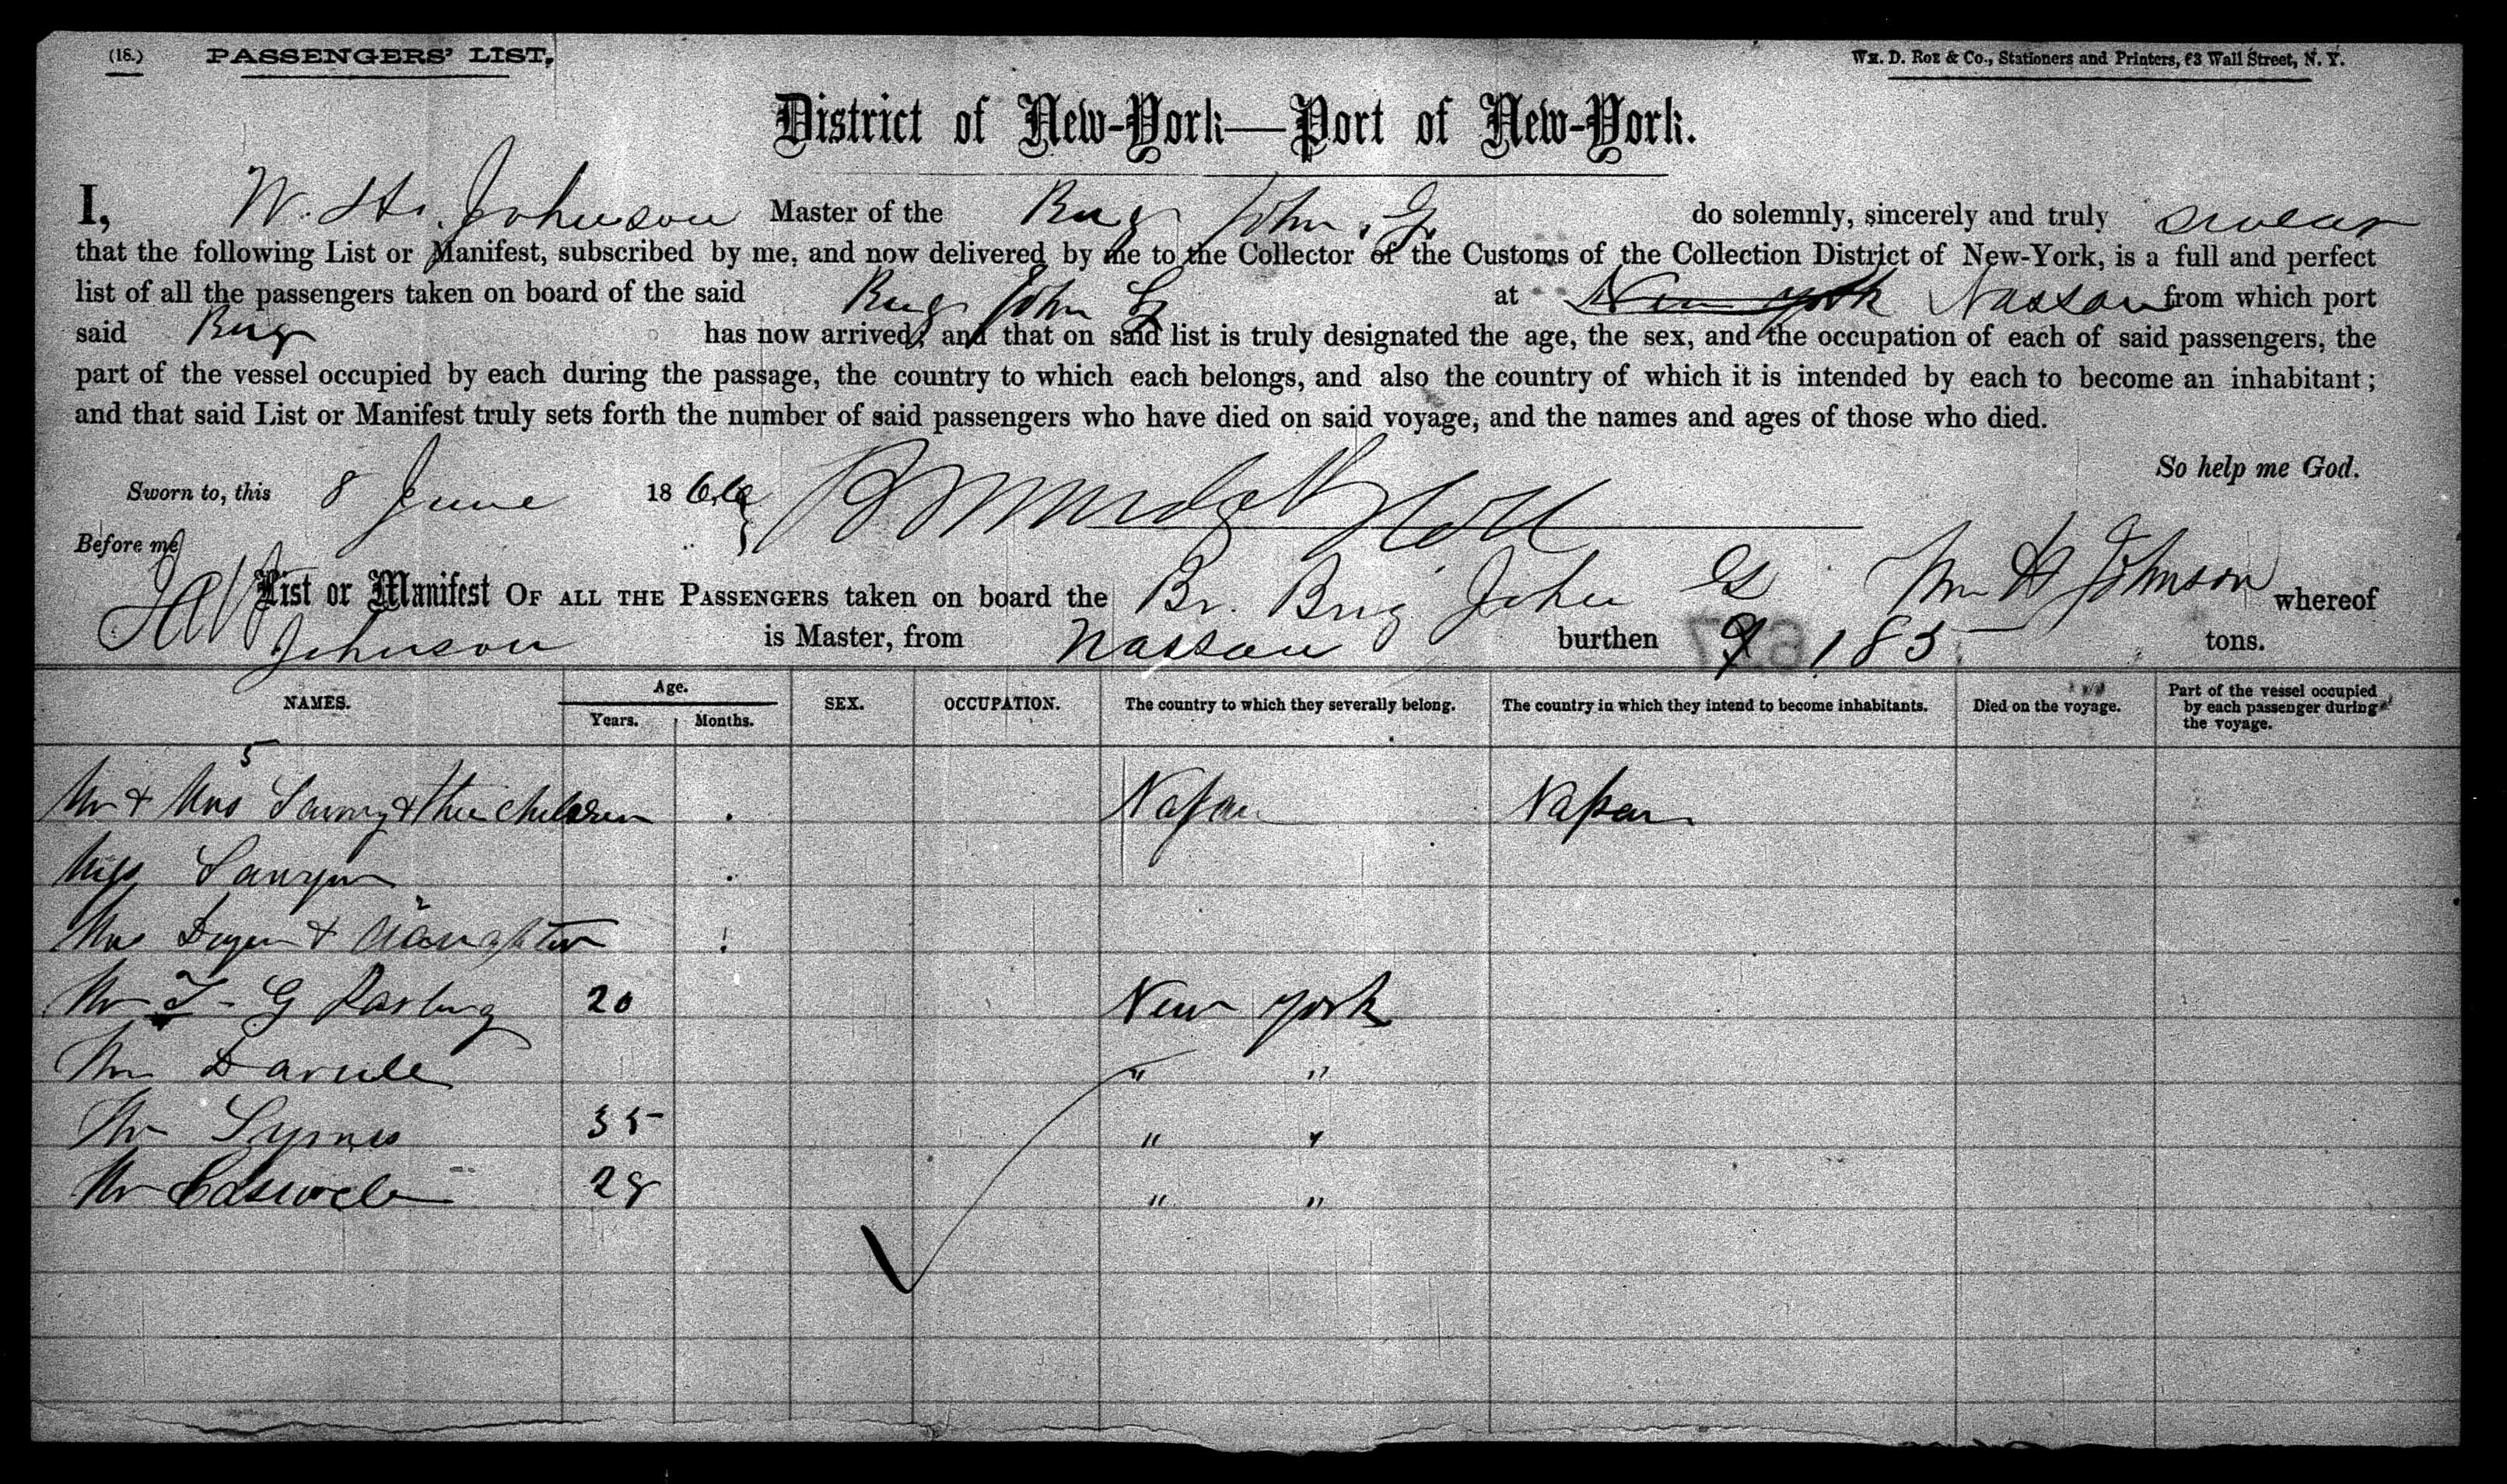 (18.) PASSENGERS' LIST, Wm. D. Roe & Co., Stationers and Printers, 63 Wall Street, N. Y.
District of New-York—Port of New-York.
I, W. H. Johnson Master of the Brig John G. do solemnly, sincerely and truly swear
that the following List or Manifest, subscribed by me, and now delivered by me to the Collector of the Customs of the Collection District of New-York, is a full and perfect
list of all the passengers taken on board of the said Brig John G at New York Nassau from which port
said Brig has now arrived; and that on said list is truly designated the age, the sex, and the occupation of each of said passengers, the
part of the vessel occupied by each during the passage, the country to which each belongs, and also the country of which it is intended by each to become an inhabitant;
and that said List or Manifest truly sets forth the number of said passengers who have died on said voyage, and the names and ages of those who died.
So help me God.
Sworn to, this 8 June 1866
Before me
List or Manifest OF ALL THE PASSENGERS taken on board the Br. Brig John G Wm H Johnson whereof
Johnson is Master, from Nassau burthen 183 tons.
NAMES. Age. Years. Months. SEX. OCCUPATION. The country to which they severally belong. The country in which they intend to become inhabitants. Died on the voyage. Part of the vessel occupied by each passenger during the voyage.
5
Mr & Mrs & three children Nassau Nassau
Miss Sawyer
2
Mrs & daughter
Mr T. G Darling 20 New York
Mr " "
Mr Symes 35 " "
Mr Caswell 28 " "